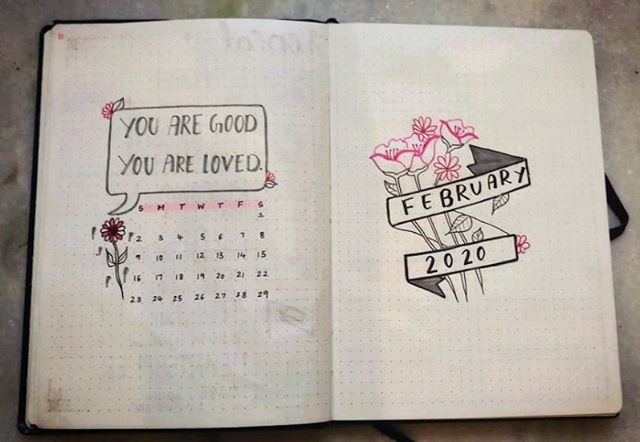 YOU ARE GOOD
YOU ARE LOVED.
S M T W T F S
1
2 3 4 5 6 7 8
9 10 11 12 13 14 15
16 17 18 19 20 21 22
23 24 25 26 27 28 29
FEBRUARY
2020